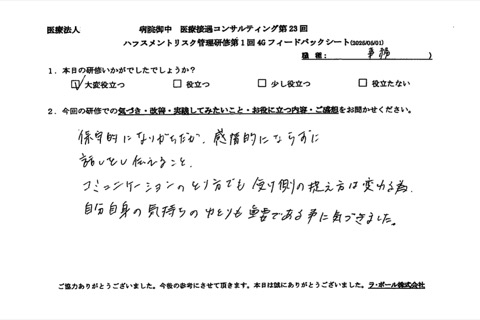 医療法人　　　病院御中　医療接遇コンサルティング第23回
ハラスメントリスク管理研修第1回4Gフィードバックシート(2025/05/01)
職種：　事務　)
1．本日の研修いかがでしたでしょうか？
☑大変役立つ　□役立つ　□少し役立つ　□役立たない
2．今回の研修での気づき・改善・実践してみたいこと・お役に立つ内容・ご感想をお聞かせください。
保守的になりがちだが、感情的にならずに
話をし伝えること、
コミュニケーションのとり方でも受け側の捉え方は変わる為、
自分自身の気持ちのゆとりも重要である事に気づきました。
ご協力ありがとうございました。今後の参考にさせて頂きます。本日は誠にありがとうございました。ラ・ポール株式会社